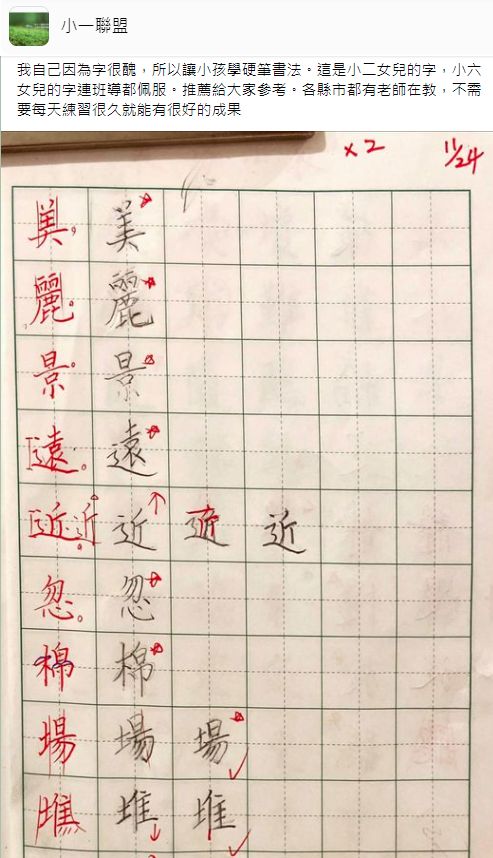 小一聯盟
我自己因為字很醜，所以讓小孩學硬筆書法。這是小二女兒的字，小六
女兒的字連班導都佩服。推薦給大家參考。各縣市都有老師在教，不需
要每天練習很久就能有很好的成果
x2 11/24
美 美
麗 麗
景 景
遠 遠
近 近 近 近 近
忽 忽
棉 棉
場 場 場
堆 堆 堆